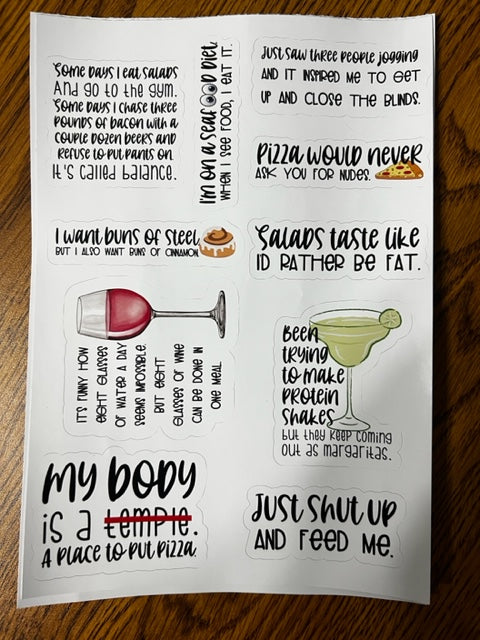 Some days I eat salads
And go to the gym.
Some days I chase three
pounds of bacon with a
couple dozen beers and
refuse to put pants on.
It's called balance.
I'm on a seafOOd diet.
When I see food, I eat it.
Just saw three people jogging
and it inspired me to get
up and close the blinds.
Pizza would never
ask you for nudes.
I want buns of steel,
but I also want buns of cinnamon.
Salads taste like
I'd rather be fat.
It's funny how
eight glasses
of water a day
seems impossible.
But eight
glasses of wine
can be done in
one meal
Been
trying
to make
protein
shakes
but they keep coming
out as margaritas.
My body
is a temple.
A place to put pizza.
Just shut up
and feed me.